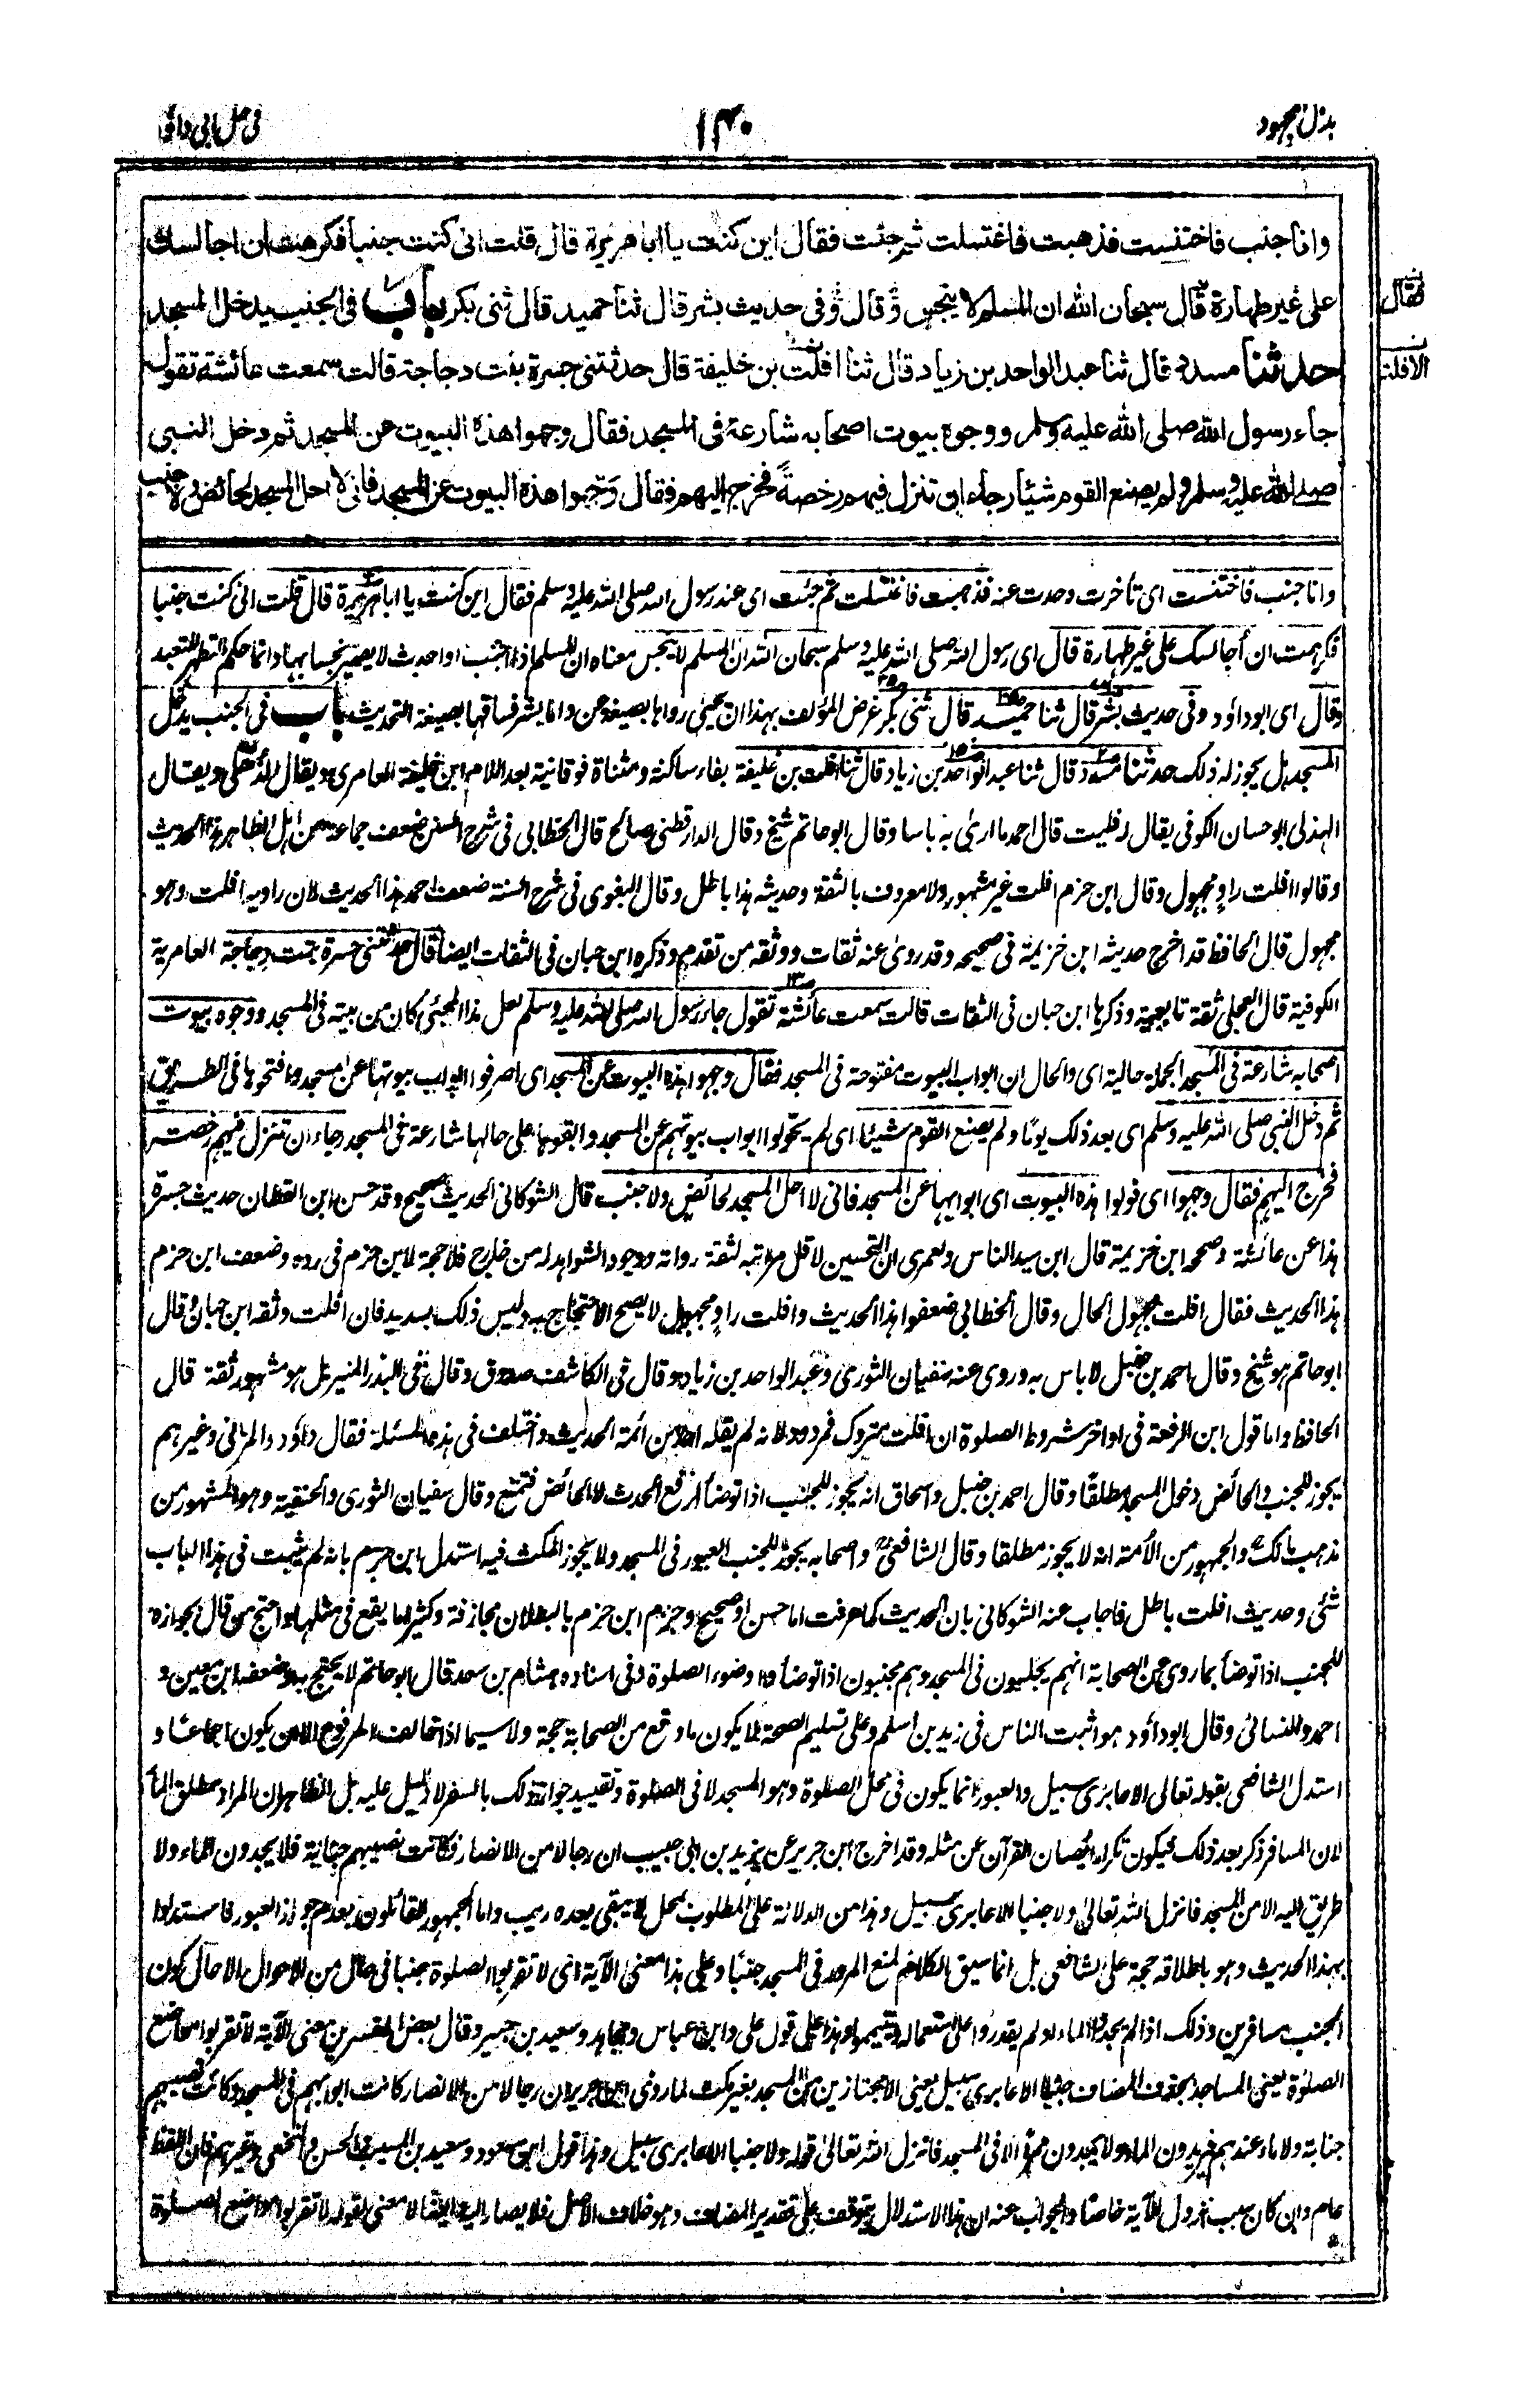 بذل المجهود
١٤٠
في حل ابي داؤد
وانا جنب فاختنست فذهبت فاغتسلت ثم جئت فقال اين كنت يا ابا هريرة قال قلت انى كنت جنبا فكرهت ان اجالسك
على غير طهارة قال سبحان الله ان المسلم لا ينجس وقال وفى حديث بشر قال ثنا حميد قال ثنى بكر باب فى الجنب يدخل المسجد
فقال
حدثنا مسدد قال ثنا عبد الواحد بن زياد قال ثنا افلت بن خليفة قال حدثتنى جسرة بنت دجاجة قالت سمعت عائشة تقول
الافلت
جاء رسول الله صلى الله عليه وسلم ووجوه بيوت اصحابه شارعة فى المسجد فقال وجهوا هذه البيوت عن المسجد ثم دخل النبى
صلى الله عليه وسلم ولم يصنع القوم شيئا رجاء ان تنزل فيهم رخصة فخرج اليهم فقال وجهوا هذه البيوت عن المسجد فانى لا احل المسجد لحائض ولا جنب
وانا جنب فاختنست اى تأخرت وحدت عنه فذهبت فاغتسلت ثم جئت اى عند رسول الله صلى الله عليه وسلم فقال اين كنت يا ابا هريرة قال قلت انى كنت جنبا
فكرهت ان أجالسك على غير طهارة قال اى رسول الله صلى الله عليه وسلم سبحان الله ان المسلم لا ينجس معناه ان المسلم اذا اجنب او احدث لا يصير نجسا بها وانما حكم التطهر للتعبد
وقال اى ابو داؤد وفى حديث بشر قال ثنا حميد قال ثنى بكر غرض المؤلف بهذا ان يحيى رواها بصيغة عن واما بشر فساقها بصيغة التحديث باب فى الجنب يدخل
المسجد هل يجوز له ذلك حدثنا مسدد قال ثنا عبد الواحد بن زياد قال ثنا افلت بن خليفة بفاء ساكنة ومثناة فوقانية بعد اللام ابن خليفة العامرى ويقال الذهلى ويقال
الهذلى ابو حسان الكوفى يقال له فليت قال احمد ما ارى به باسا وقال ابو حاتم شيخ وقال الدارقطنى صالح قال الخطابى فى شرح السنن ضعف جماعة من اهل الظاهر هذا الحديث
وقالوا افلت راو مجهول وقال ابن حزم افلت غير مشهور ولا معروف بالثقة وحديثه هذا باطل وقال البغوى فى شرح السنة ضعف احمد هذا الحديث لان راويه افلت وهو
مجهول قال الحافظ قد اخرج حديثه ابن خزيمة فى صحيحه وقد روى عنه ثقات ووثقه من تقدم وذكره ابن حبان فى الثقات ايضا قال حدثتنى جسرة بنت دجاجة العامرية
الكوفية قال العجلى ثقة تابعية وذكرها ابن حبان فى الثقات قالت سمعت عائشة تقول جاء رسول الله صلى الله عليه وسلم لعل هذا المجئى كان من بيته فى المسجد ووجوه بيوت
اصحابه شارعة فى المسجد الجملة حالية اى والحال ان ابواب البيوت مفتوحة فى المسجد فقال وجهوا هذه البيوت عن المسجد اى اصرفوا ابواب بيوتها عن مسجد وافتحوها فى الطريق
ثم دخل النبى صلى الله عليه وسلم اى بعد ذلك يوما ولم يصنع القوم شيئا اى لم يحولوا ابواب بيوتهم عن المسجد وابقوها على حالها شارعة فى المسجد رجاء ان تنزل فيهم رخصة
فخرج اليهم فقال وجهوا اى فولوا هذه البيوت اى ابوابها عن المسجد فانى لا احل المسجد لحائض ولا جنب قال الشوكانى الحديث صحيح وقد حسن ابن القطان حديث جسرة
هذا عن عائشة وصححه ابن خزيمة قال ابن سيد الناس ولعمرى ان التحسين لاقل مراتبه لثقة رواته ووجود الشواهد له من خارج فلا حجة لابن حزم فى رده وضعف ابن حزم
هذا الحديث فقال افلت مجهول الحال وقال الخطابى ضعفوا هذا الحديث وافلت راو مجهول لا يصح الاحتجاج به وليس ذلك بسديد فان افلت وثقه ابن حبان وقال
ابو حاتم هو شيخ وقال احمد بن حنبل لا باس به وروى عنه سفيان الثورى وعبد الواحد بن زياد وقال فى الكاشف صدوق وقال فى البدر المنير بل هو مشهور ثقة قال
الحافظ واما قول ابن الرفعة فى اواخر شروط الصلوة ان افلت متروك فمردود لانه لم يقله احد من ائمة الحديث واختلف فى هذه المسئلة فقال داؤد والمزنى وغيرهم
يجوز للجنب والحائض دخول المسجد مطلقا وقال احمد بن حنبل واسحاق انه يجوز للجنب اذا توضأ لرفع الحدث لا الحائض فتمنع وقال سفيان الثورى والحنفية وهو المشهور من
مذهب مالك والجمهور من الأمة انه لا يجوز مطلقا وقال الشافعى واصحابه يجوز للجنب العبور فى المسجد ولا يجوز المكث فيه استدل ابن حزم بانه لم يثبت فى هذا الباب
شئى وحديث افلت باطل فاجاب عنه الشوكانى بان الحديث كما عرفت اما حسن او صحيح وجزم ابن حزم بالبطلان مجازفة وكثيرا ما يقع فى مثلها واحتج من قال بجوازه
للجنب اذا توضأ بما روى عن الصحابة انهم يجلسون فى المسجد وهم مجنبون اذا توضأوا وضوء الصلوة وفى اسناده هشام بن سعد قال ابو حاتم لا يحتج به وضعفه ابن معين و
احمد والنسائى وقال ابو داؤد هو اثبت الناس فى زيد بن اسلم وعلى تسليم الصحة لا يكون ما وقع من الصحابة حجة ولا سيما اذا خالف المرفوع الا ان يكون اجماعا و
استدل الشافعى بقوله تعالى الا عابرى سبيل والعبور انما يكون فى محل الصلوة وهو المسجد لا فى الصلوة وتقييد جواز ذلك بالسفر لا دليل عليه بل الظاهر ان المراد مطلق المار
لان المسافر ذكر بعد ذلك فيكون تكرارا يصان القرآن عن مثله وقد اخرج ابن جرير عن يزيد بن ابى حبيب ان رجالا من الانصار فكانت تصيبهم جنابة فلا يجدون الماء ولا
طريق اليه الا من المسجد فانزل الله تعالى ولا جنبا الا عابرى سبيل وهذا من الدلالة على المطلوب بمحل لا يبقى بعده ريب واما الجمهور القائلون بعدم جواز العبور فاستدلوا
بهذا الحديث وهو باطلاقه حجة على الشافعى بل انما سيق الكلام لمنع المرور فى المسجد جنبا وعلى هذا معنى الآية اى لا تقربوا الصلوة جنبا فى حال من الاحوال الا حال كون
الجنب مسافرين وذلك اذا لم يجدوا الماء او لم يقدروا على استعماله تيمموا وهذا على قول على وابن عباس ومجاهد وسعيد بن جبير وقال بعض المفسرين معنى الآية لا تقربوا مواضع
الصلوة يعنى المساجد بحذف المضاف جنبا الا عابرى سبيل يعنى الا مجتازين من المسجد بغير مكث لما روى ابن جرير ان رجالا من الانصار كانت ابوابهم فى المسجد وكانت تصيبهم
جنابة ولا ماء عندهم فيريدون الماء ولا يجدون ممرا الا فى المسجد فانزل الله تعالى قوله ولا جنبا الا عابرى سبيل وهذا قول ابن مسعود وسعيد بن المسيب والحسن والنخعى وغيرهم فان اللفظ
عام وان كان سبب نزول الآية خاصا والجواب عنه ان هذا الاستدلال يتوقف على تقدير المضاف وهو خلاف الاصل فلا يصار اليه الا معنى لقوله لا تقربوا مواضع الصلوة